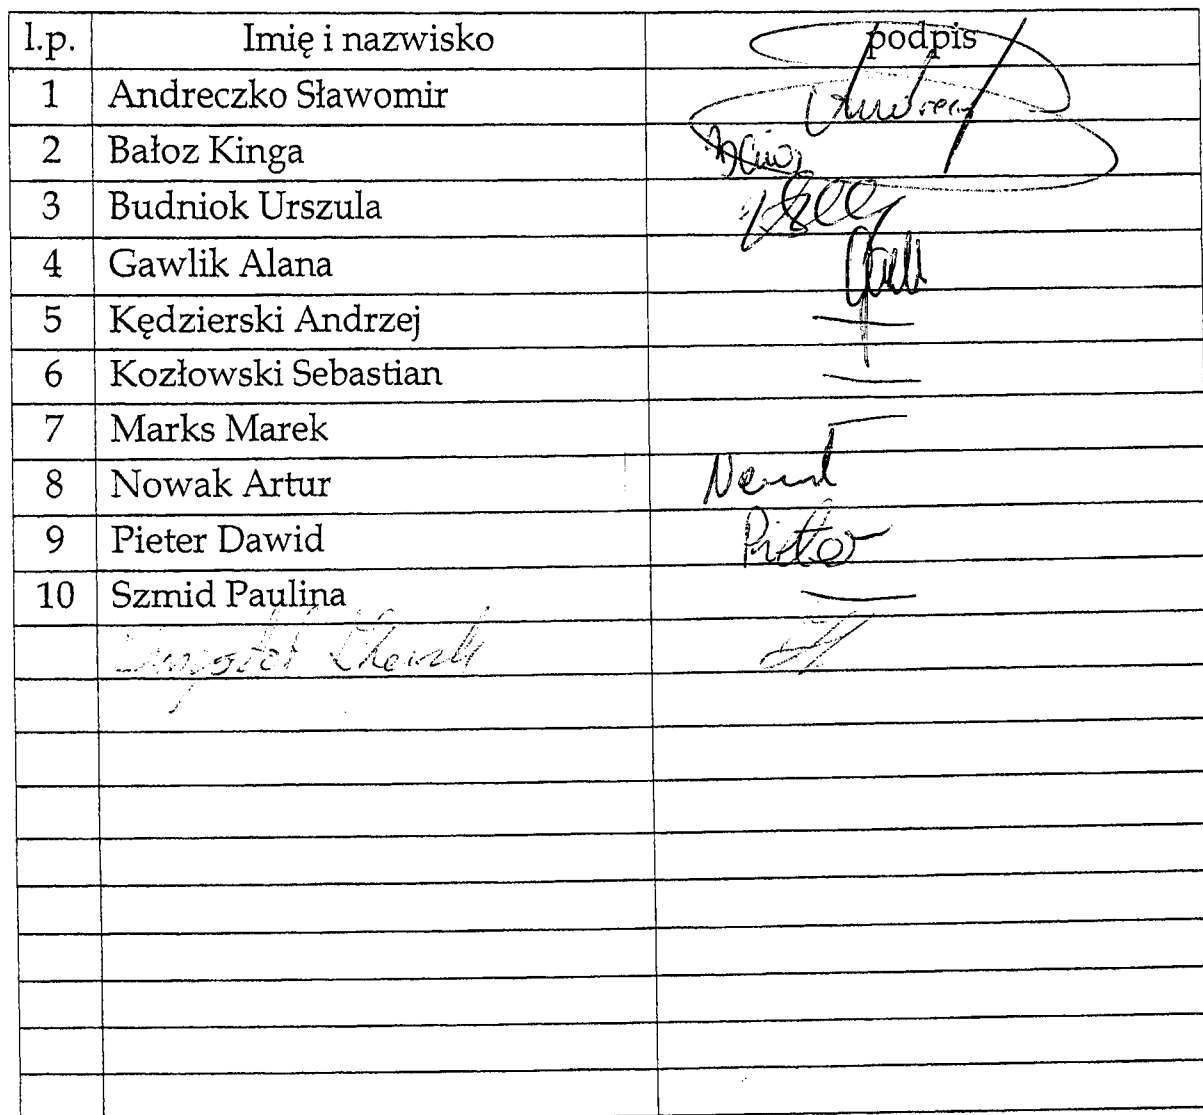 l.p. Imię i nazwisko podpis
1 Andreczko Sławomir
2 Bałoz Kinga
3 Budniok Urszula
4 Gawlik Alana
5 Kędzierski Andrzej —
6 Kozłowski Sebastian —
7 Marks Marek —
8 Nowak Artur
9 Pieter Dawid
10 Szmid Paulina —